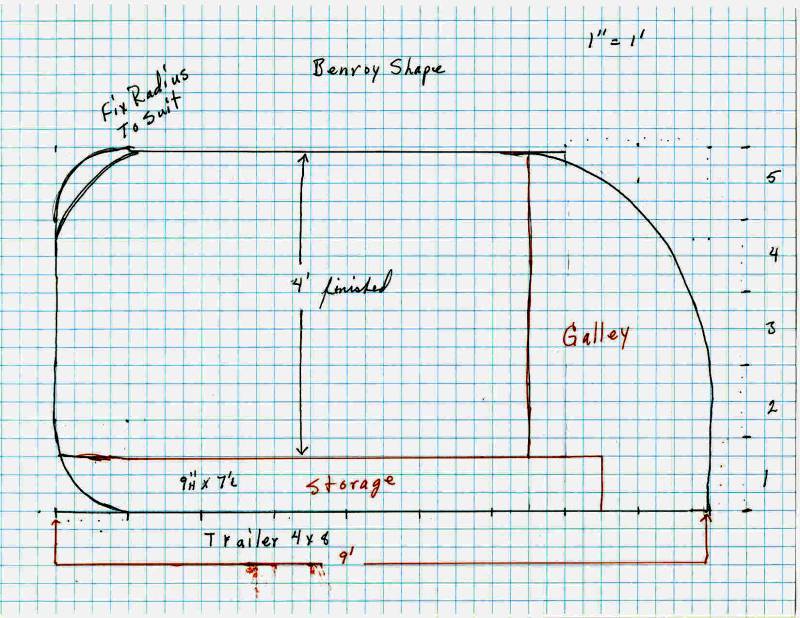 1" = 1'
Benroy Shape
Fix Radius
To Suit
5
4
4' finished
3
Galley
2
9"H x 7'L
Storage
1
Trailer 4x8
9'